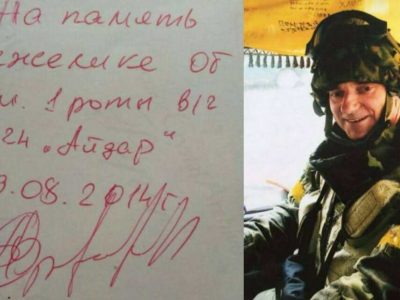 На память
желике от
1 роты в/ч
24 „Айдар"
.08.2014г.